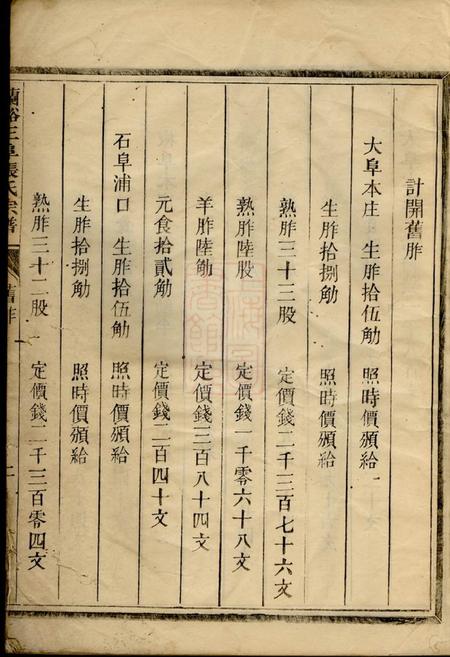 計開舊胙
大阜本庄 生胙拾伍觔 照時價頒給
生胙拾捌觔 照時價頒給
熟胙三十三股 定價錢二千三百七十六文
熟胙陸股 定價錢 千零六十八文
羊胙陸觔 定價錢三百八十四文
元食拾貳觔 定價錢二百四十文
石阜浦口 生胙拾伍觔 照時價頒給
生胙拾捌觔 照時價頒給
熟胙三十二股 定價錢二千三百零四文
張氏宗譜
舊胙